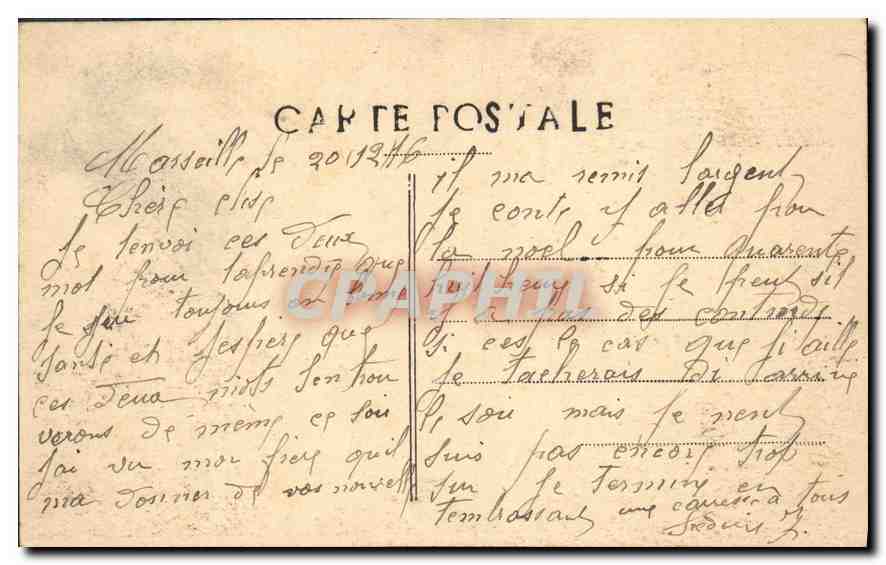 CARTE POSTALE
Marseille le 20/12/16
Chère elise
Je tenvoi ces Deux
mot pour taprendre que
je sui toujours en bonne
santé et jespère que
ces Deux mots ten trou
verons de même ce soir
jai vu mon frère quil
ma donner de vos nouvelle
il ma remis largent
Je conte y allé pour
la noel pour quarente
huit heure si je peut sil
y a pas des contords
si ces le cas que jaille
je tacherais di arrivé
le soir mais je nent
suis pas encore trop
sur je termine en
tembrassant une caresse a tous
CPAPHIL